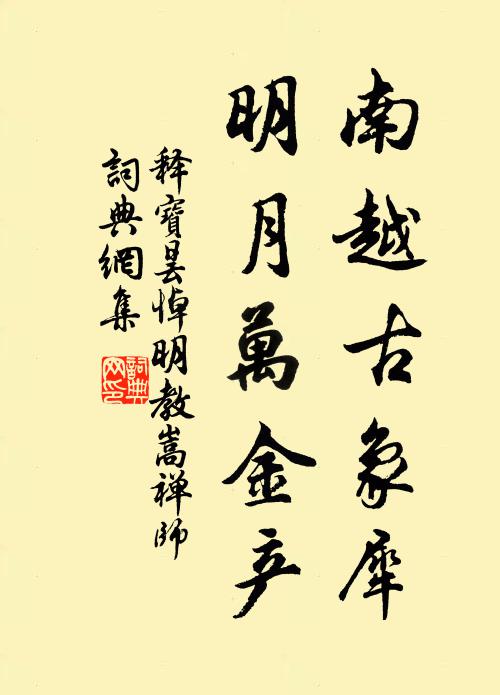 南越古象犀
明月萬金产
释寶昙悼明教嵩禅师
詞典網集
詞典网印